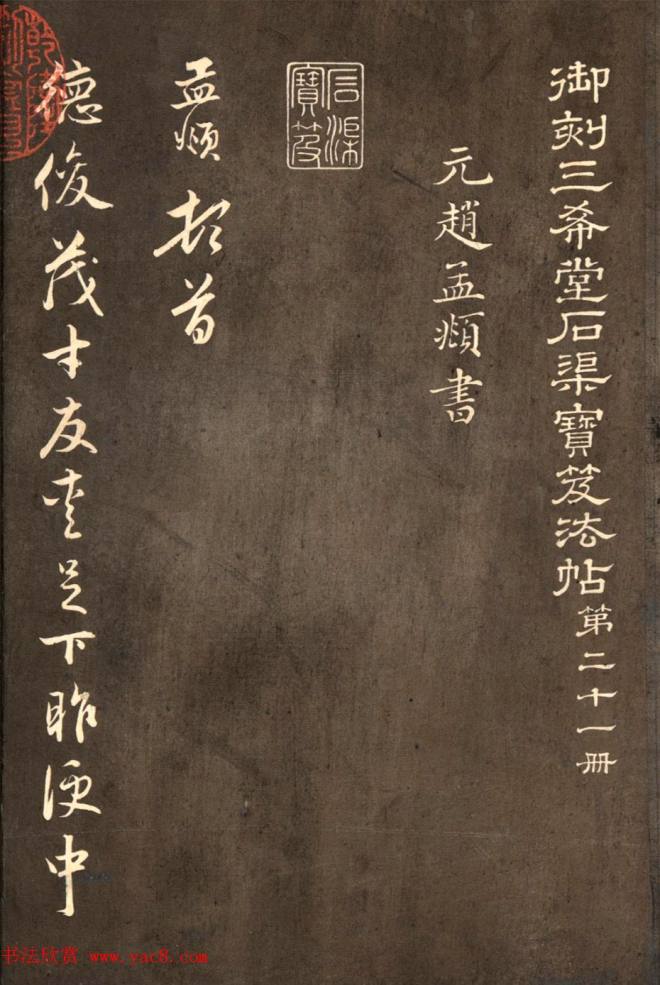 御刻三希堂石渠寶笈法帖第二十一册
元趙孟頫書
石渠寶笈
孟頫頓首
德俊茂才友愛足下昨便中
书法欣赏 www.yac8.com